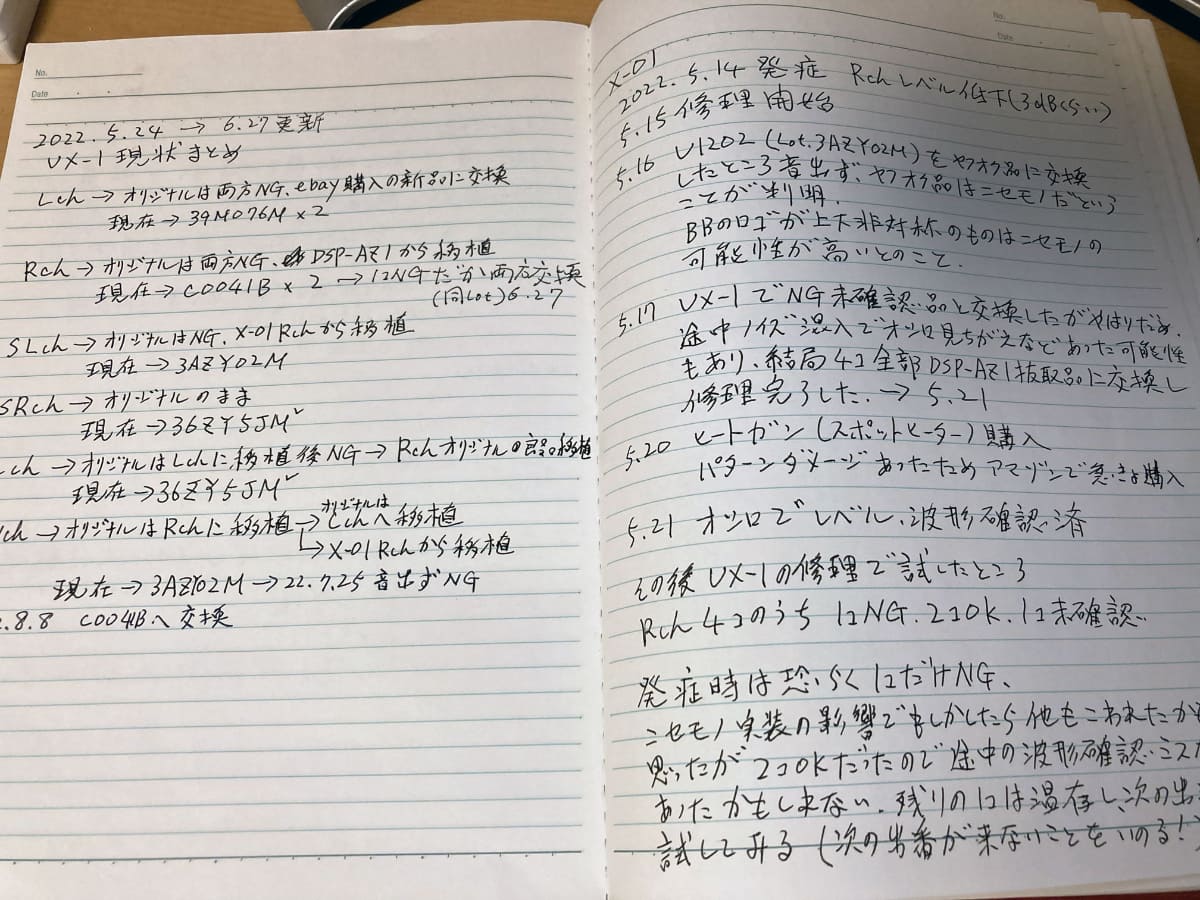 No.
Date
2022.5.24 → 6.27更新
UX-1 現状まとめ
Lch → オリジナルは両方NG、ebay購入の新品に交換
現在 → 39M076M × 2
Rch → オリジナルは両方NG、DSP-AZ1から移植
現在 → C0041B × 2 → 1コNGだが両方交換
(同Lot) 6.27
SLch → オリジナルはNG、X-01 Rchから移植
現在 → 3AZY02M
SRch → オリジナルのまま
現在 → 36ZY5JM✓
ch → オリジナルはLchに移植後NG → Rchオリジナルの良品移植
現在 → 36ZY5JM✓
ch → オリジナルはRchに移植 → オリジナルはLchへ移植
↳ X-01 Rchから移植
現在 → 3AZY02M → 22.7.25 音出ずNG
.8.8 C0041Bへ交換
No.
Date
X-01
2022.5.14 発症 Rchレベル低下(3dBくらい)
5.15 修理開始
5.16 U1202 (Lot.3AZY02M) をヤフオク品に交換
したところ音出ず、ヤフオク品はニセモノだという
ことが判明。
BBのロゴが上下非対称のものはニセモノの
可能性が高いとのこと。
5.17 UX-1でNG未確認品と交換したがやはりだめ。
途中ノイズ混入でオシロ見ちがえなどあった可能性
もあり、結局4コ全部DSP-AZ1抜取品に交換し
修理完了した。→ 5.21
5.20 ヒートガン(スポットヒーター)購入
パターンダメージあったためアマゾンで急きょ購入
5.21 オシロでレベル、波形確認済
その後UX-1の修理で試したところ
Rch 4コのうち 1コNG.2コOK.1コ未確認
発症時は恐らく1コだけNG、
ニセモノ実装の影響でもしかしたら他もこわれたか
思ったが2コOKだったので途中の波形確認ミスが
あったかもしれない。残りの1コは温存し、次の出
試してみる(次の出番が来ないことをいのる!)